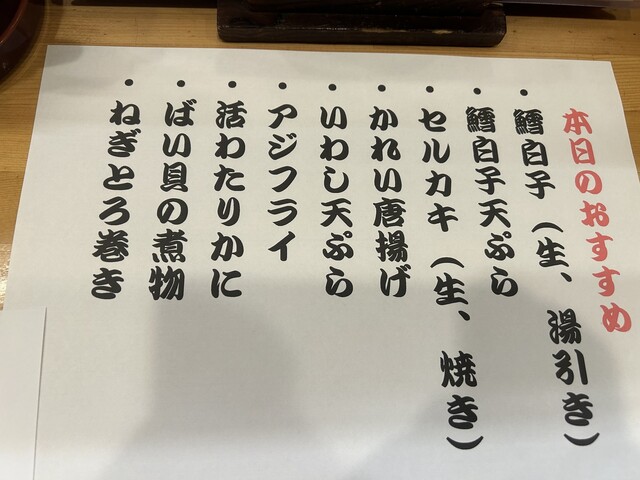 本日のおすすめ
・鱈白子（生、湯引き）
・鱈白子天ぷら
・セルカキ（生、焼き）
・かれい唐揚げ
・いわし天ぷら
・アジフライ
・活わたりかに
・ばい貝の煮物
・ねぎとろ巻き